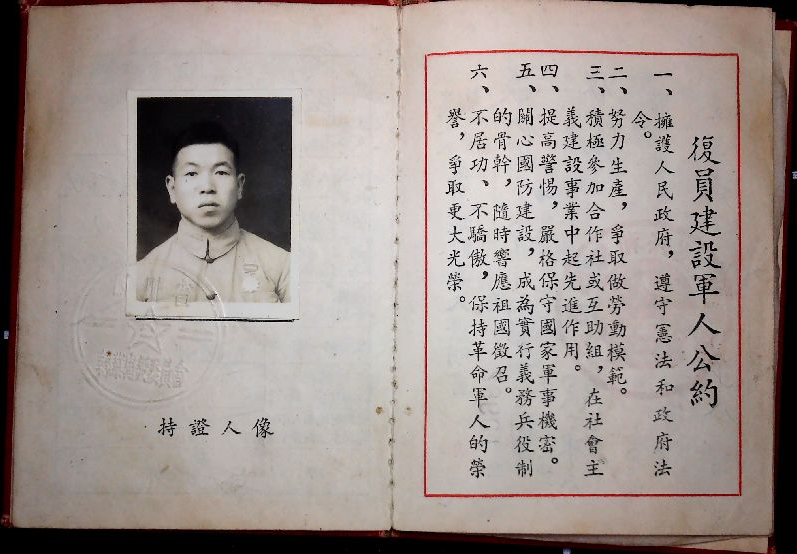 復員建設軍人公約
一、擁護人民政府，遵守憲法和政府法
令。
二、努力生產，爭取做勞動模範。
三、積極參加合作社或互助組，在社會主
義建設事業中起先進作用。
四、提高警惕，嚴格保守國家軍事機密。
五、關心國防建設，成為實行義務兵役制
的骨幹，隨時響應祖國徵召。
六、不居功、不驕傲，保持革命軍人的榮
譽，爭取更大光榮。
持證人像